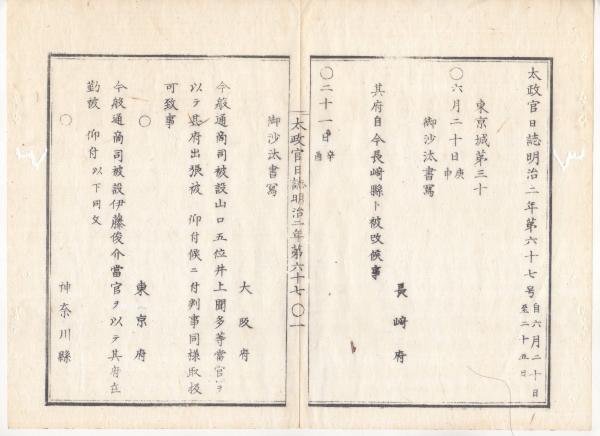 太政官日誌明治二年第六十七号 自六月二十日 至二十五日
東京城第三十
〇六月二十日庚申
御沙汰書寫
長崎府
其府自今長崎縣ト被改候事
〇二十一日辛酉
太政官日誌明治二年第六十七 〇一
御沙汰書寫
大阪府
今般通商司被設山口五位井上聞多等當官ヲ
以テ其府出張被 仰付候ニ付判事同様取扱
可致事
〇 東京府
今般通商司被設伊藤俊介當官ヲ以テ其府在
勤被 仰付 以下同文
〇 神奈川縣